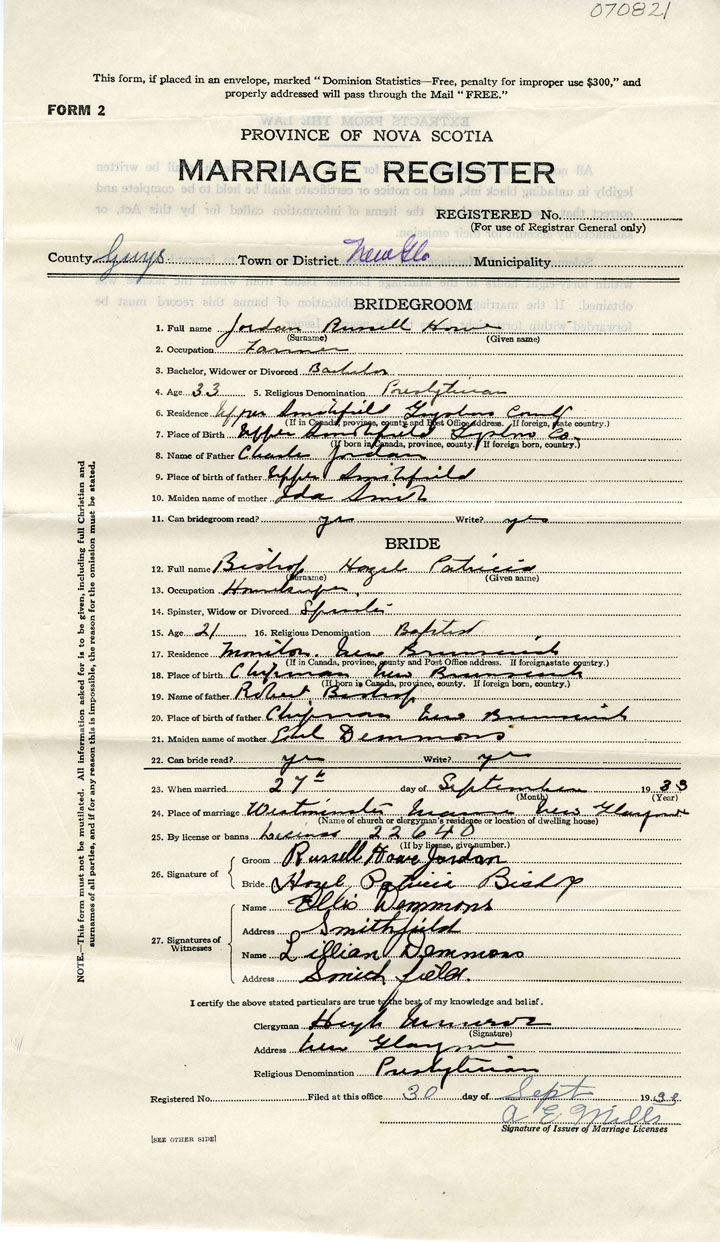 070821
This form, if placed in an envelope, marked "Dominion Statistics—Free, penalty for improper use $300," and
properly addressed will pass through the Mail "FREE."
FORM 2
PROVINCE OF NOVA SCOTIA
MARRIAGE REGISTER
REGISTERED No.
(For use of Registrar General only)
County Guys. Town or District New Glo Municipality
BRIDEGROOM
1. Full name Jordan Russell Howe
(Surname) (Given name)
2. Occupation Farmer
3. Bachelor, Widower or Divorced Bachelor
4. Age 33 5. Religious Denomination Presbyterian
6. Residence Upper Smithfield Guysboro County
(If in Canada, province, county and Post Office address. If foreign, state country.)
7. Place of Birth Upper Smithfield Guysboro Co.
(If born in Canada, province, county. If foreign born, country.)
8. Name of Father Charles Jordan
9. Place of birth of father Upper Smithfield
10. Maiden name of mother Ida Smith
11. Can bridegroom read? yes Write? yes
BRIDE
12. Full name Bishop Hazel Patricia
(Surname) (Given name)
13. Occupation Housekeeper
14. Spinster, Widow or Divorced Spinster
15. Age 21 16. Religious Denomination Baptist
17. Residence Moncton New Brunswick
(If in Canada, province, county and Post Office address. If foreign state country.)
18. Place of Birth Chipman New Brunswick
(If born in Canada, province, county. If foreign born, country.)
19. Name of father Robert Bishop
20. Place of birth of father Chipman New Brunswick
21. Maiden name of mother Demmons
22. Can bride read? yes Write? yes
23. When married 27th day of September 1933
(Month) (Year)
24. Place of marriage Westminster Manse New Glasgow
(Name of church or clergyman's residence or location of dwelling house)
25. By license or banns License 22640
(If by license, give number.)
26. Signature of
Groom Russell Howe Jordan
Bride Hazel Patricia Bishop
27. Signatures of Witnesses
Name Ellis Demmons
Address Smithfield
Name Lillian Demmons
Address Smithfield.
I certify the above stated particulars are true to the best of my knowledge and belief.
Clergyman Hugh Munroe
(Signature)
Address New Glasgow
Religious Denomination Presbyterian
Registered No. Filed at this office 30 day of Sept 1933
A E Mills
Signature of Issuer of Marriage Licenses
[SEE OTHER SIDE]
NOTE.—This form must not be mutilated. All information asked for is to be given, including full Christian and
surnames of all parties, and if for any reason this is impossible, the reason for the omission must be stated.